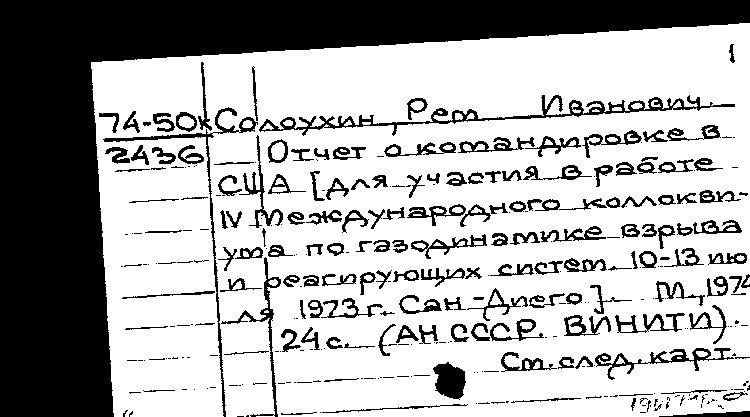 1
74-50к Солоухин, Рем Иванович.
2436 Отчет о командировке в
США [для участия в работе
IV Международного коллокви-
ума по газодинамике взрыва
и реагирующих систем. 10-13 ию
ля 1973 г. Сан-Диего]. М., 1974
24 с. (АН СССР. ВИНИТИ).
См. след. карт.